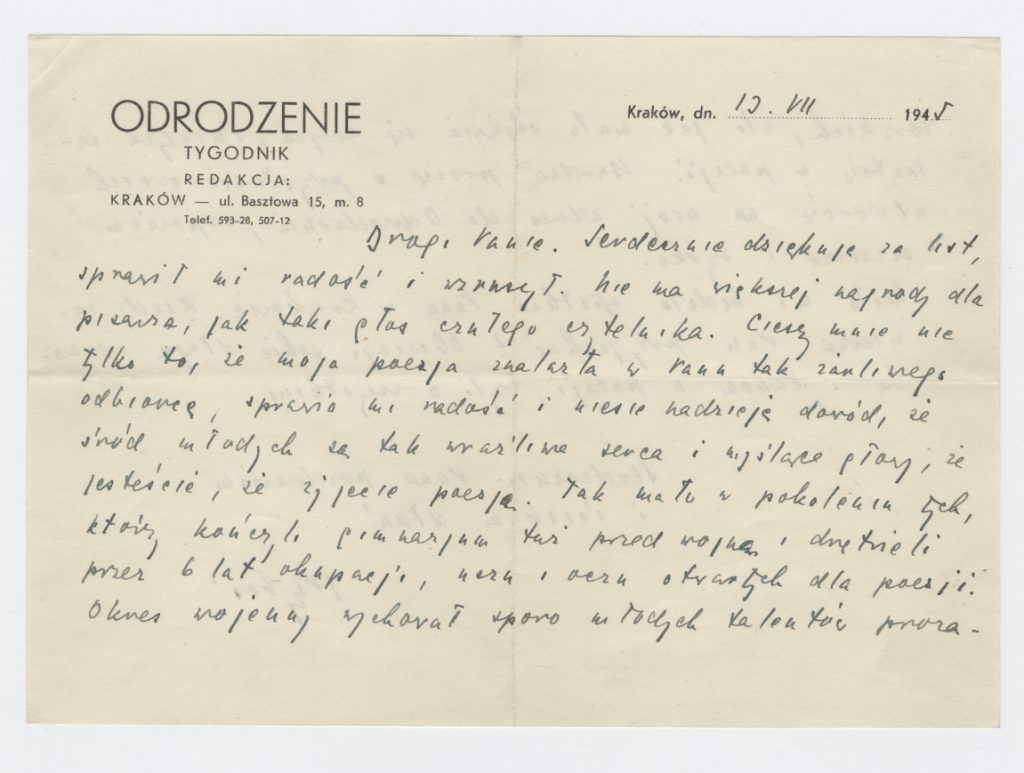 ODRODZENIE
TYGODNIK
REDAKCJA:
KRAKÓW — ul. Basztowa 15, m. 8
Telef. 593-28, 507-12
Kraków, dn. 13. VII 1945
Drogi Panie. Serdecznie dziękuję za list,
sprawił mi radość i wzruszył. Nie ma większej nagrody dla
pisarza, jak taki głos czułego czytelnika. Cieszy mnie nie
tylko to, że moja poezja znalazła w Panu tak żarliwego
odbiorcę, sprawia mi radość i niesie nadzieję dowód, że
śród młodych są tak wrażliwe serca i myślące głowy, że
jesteście, że żyjecie poezją. Tak mało w pokoleniu tych,
którzy kończyli gimnazjum tuż przed wojną i drętwieli
przez 6 lat okupacji, uszu i oczu otwartych dla poezji.
Okres wojenny wychował sporo młodych talentów proza-